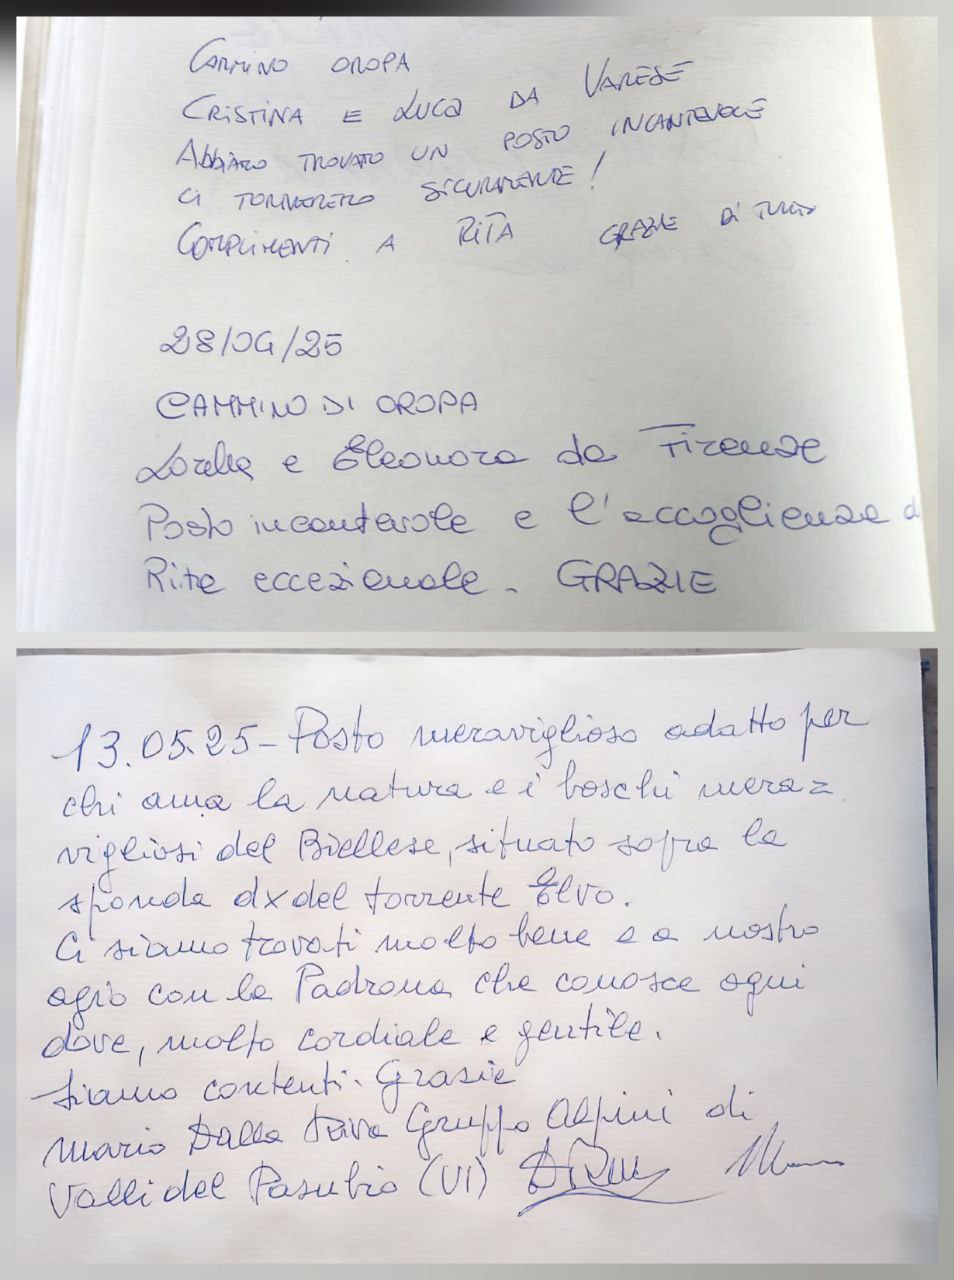 CAMMINO OROPA
CRISTINA E LUCA DA VARESE
ABBIAMO TROVATO UN POSTO INCANTEVOLE
CI TORNEREMO SICURAMENTE!
COMPLIMENTI A RITA GRAZIE DI TUTTO
28/04/25
CAMMINO DI OROPA
Lorella e Eleonora da Firenze
Posto incantevole e l'accoglienza d
Rita eccezionale. GRAZIE
13.05.25 - Posto meraviglioso adatto per
chi ama la natura e i boschi mera=
vigliosi del Biellese, situato sopra la
sponda dx del torrente Elvo.
Ci siamo trovati molto bene e a nostro
agio con la Padrona che conosce ogni
dove, molto cordiale e gentile.
Siamo contenti. Grazie
Mario Dalla Gruppo Alpini di
Valli del Pasubio (VI)